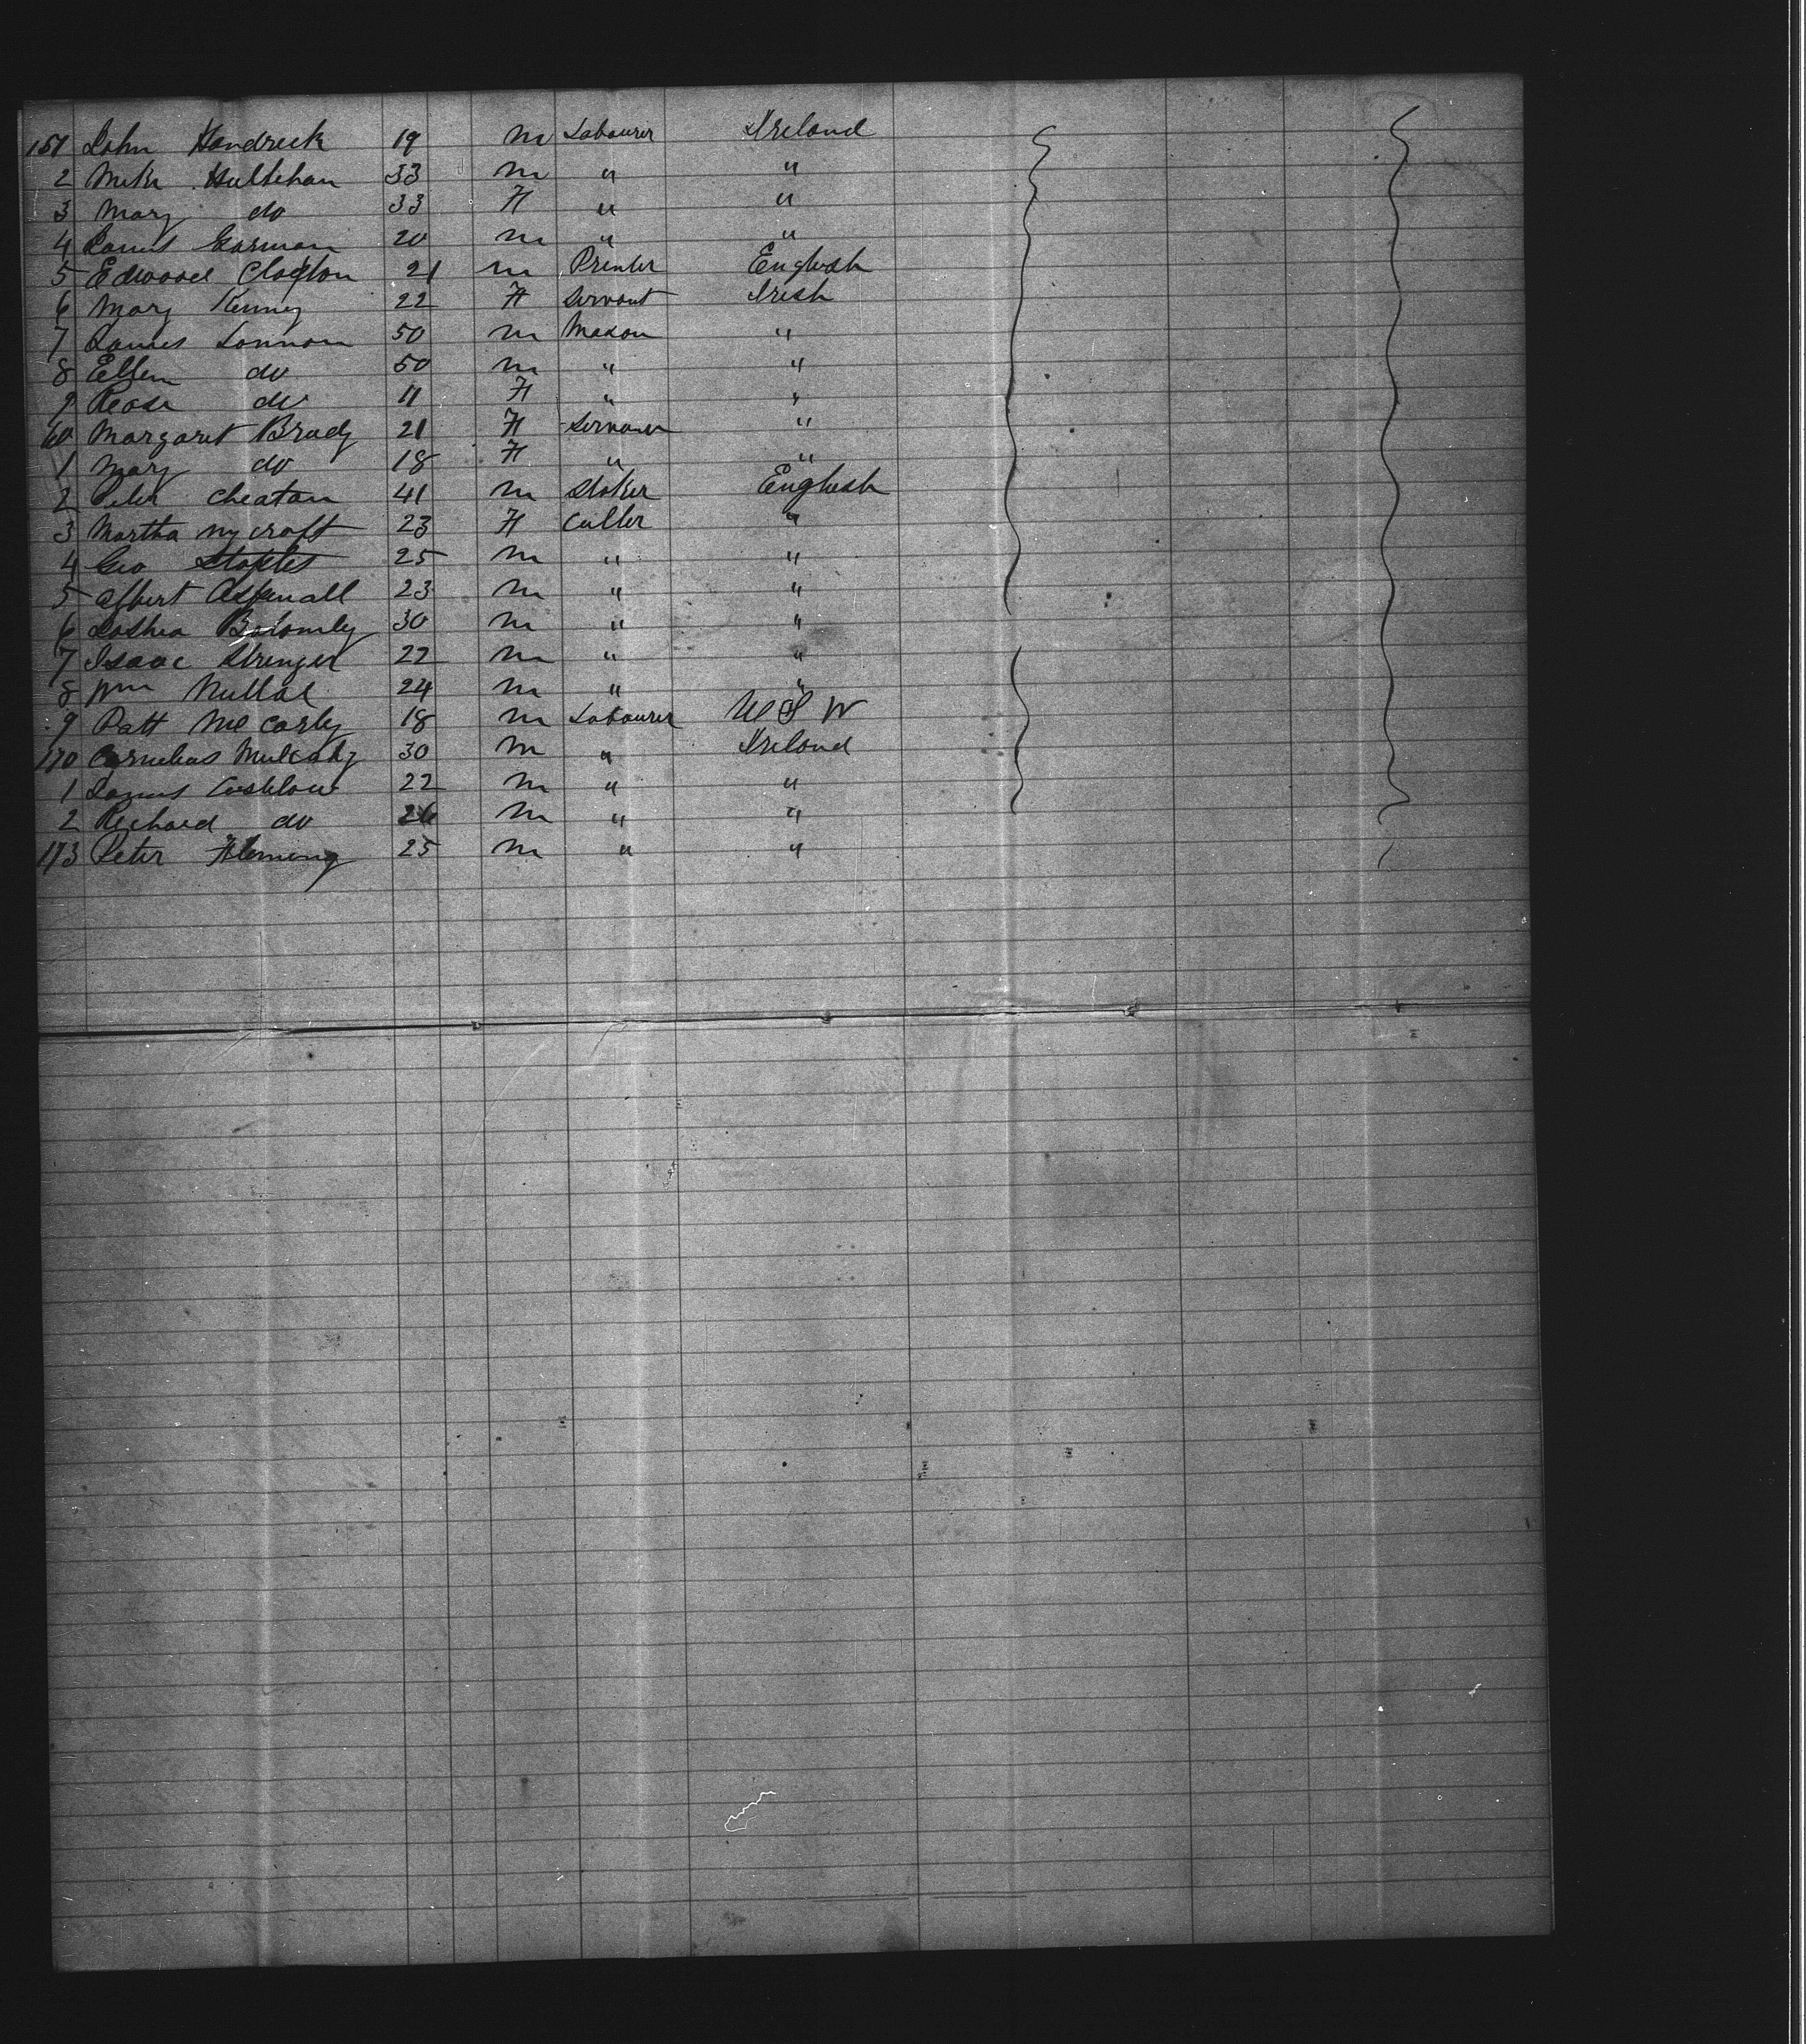 151 John Hendrick 19 M Labourer Ireland
2 Mike Hullihan 33 M " "
3 Mary do 33 F " "
4 James Gorman 20 M " "
5 Edward Clayton 21 M Printer English
6 Mary Kenney 22 F Servant Irish
7 James Lennon 50 M Mason "
8 Ellen do 50 M " "
9 Rose do 11 F " "
60 Margaret Brady 21 F Servant "
1 Mary do 18 F " "
2 Peter Cheatam 41 M Stoker English
3 Martha Nycroft 23 F Cutler "
4 Geo Staples 25 M " "
5 Albert Aspinall 23 M " "
6 Joshua 30 M " "
7 Isaac Stringer 22 M " "
8 Wm Nuttal 24 M " "
9 Patt McCarty 18 M Labourer
170 Cornelius Mulcahy 30 M " Ireland
1 James 22 M " "
2 Richard do 26 M " "
173 Peter Fleming 25 M " "